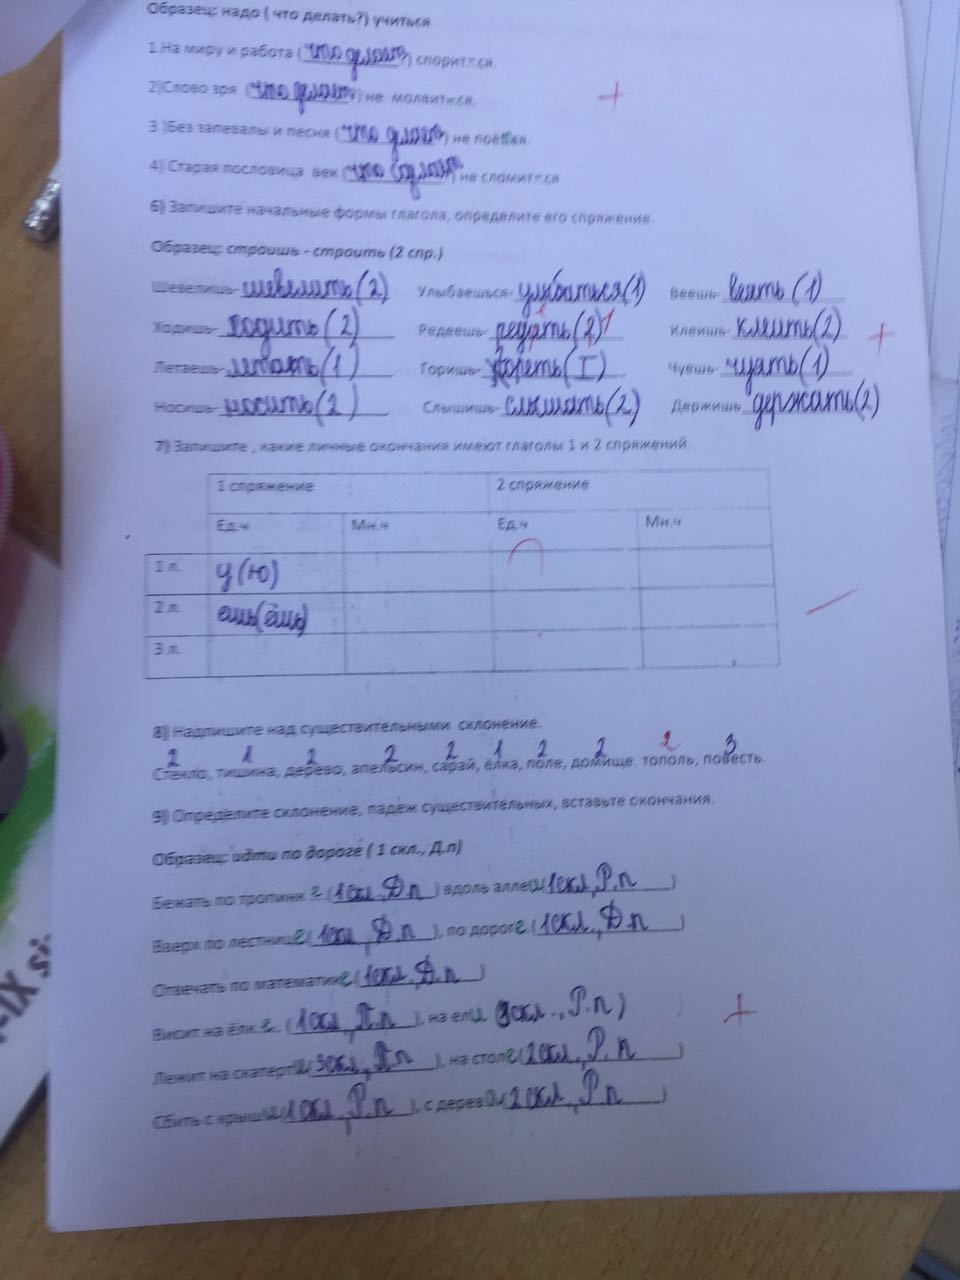 Образец: надо ( что делать?) учиться
1.На миру и работа (что делает) спорится.
2)Слово зря (что делает) не молвится.
3 )Без запевалы и песня (что делает) не поётся.
4) Старая пословица век (что сделает) не сломится
6) Запишите начальные формы глагола, определите его спряжение.
Образец: строишь - строить (2 спр.)
Шевелишь- шевелить(2) Улыбаешься- улыбаться(1) Веешь- веять (1)
Ходишь- ходить (2) Редеешь- редеть(1) Клеишь- клеить(2)
Летаешь- летать (1) Горишь- гореть (I) Чуешь- чуять (1)
Носишь- носить (2) Слышишь- слышать (2) Держишь- держать(2)
7) Запишите , какие личные окончания имеют глаголы 1 и 2 спряжений.
1 спряжение 2 спряжение
Ед.ч Мн.ч Ед.ч Мн.ч
1 л. у(ю)
2 л. ешь(ёшь)
3 л.
8) Надпишите над существительными склонение.
2 1 2 2 2 1 2 2 2 3
Стекло, тишина, дерево, апельсин, сарай, ёлка, поле, домище. тополь, повесть.
9) Определите склонение, падеж существительных, вставьте окончания.
Образец: идти по дороге ( 1 скл., Д.п)
Бежать по тропинке (1скл, Д.п) вдоль аллеи(1скл, Р.п)
Вверх по лестнице(1скл, Д.п), по дороге (1скл, Д.п)
Отвечать по математике (1скл, Д.п)
Висит на ёлке (1скл, П.п), на ели 3скл., Р.п)
Лежит на скатерти(3скл, П.п), на столе(2скл, Р.п)
Сбить с крыши(1скл, Р.п), с дерева(2скл, Р.п)